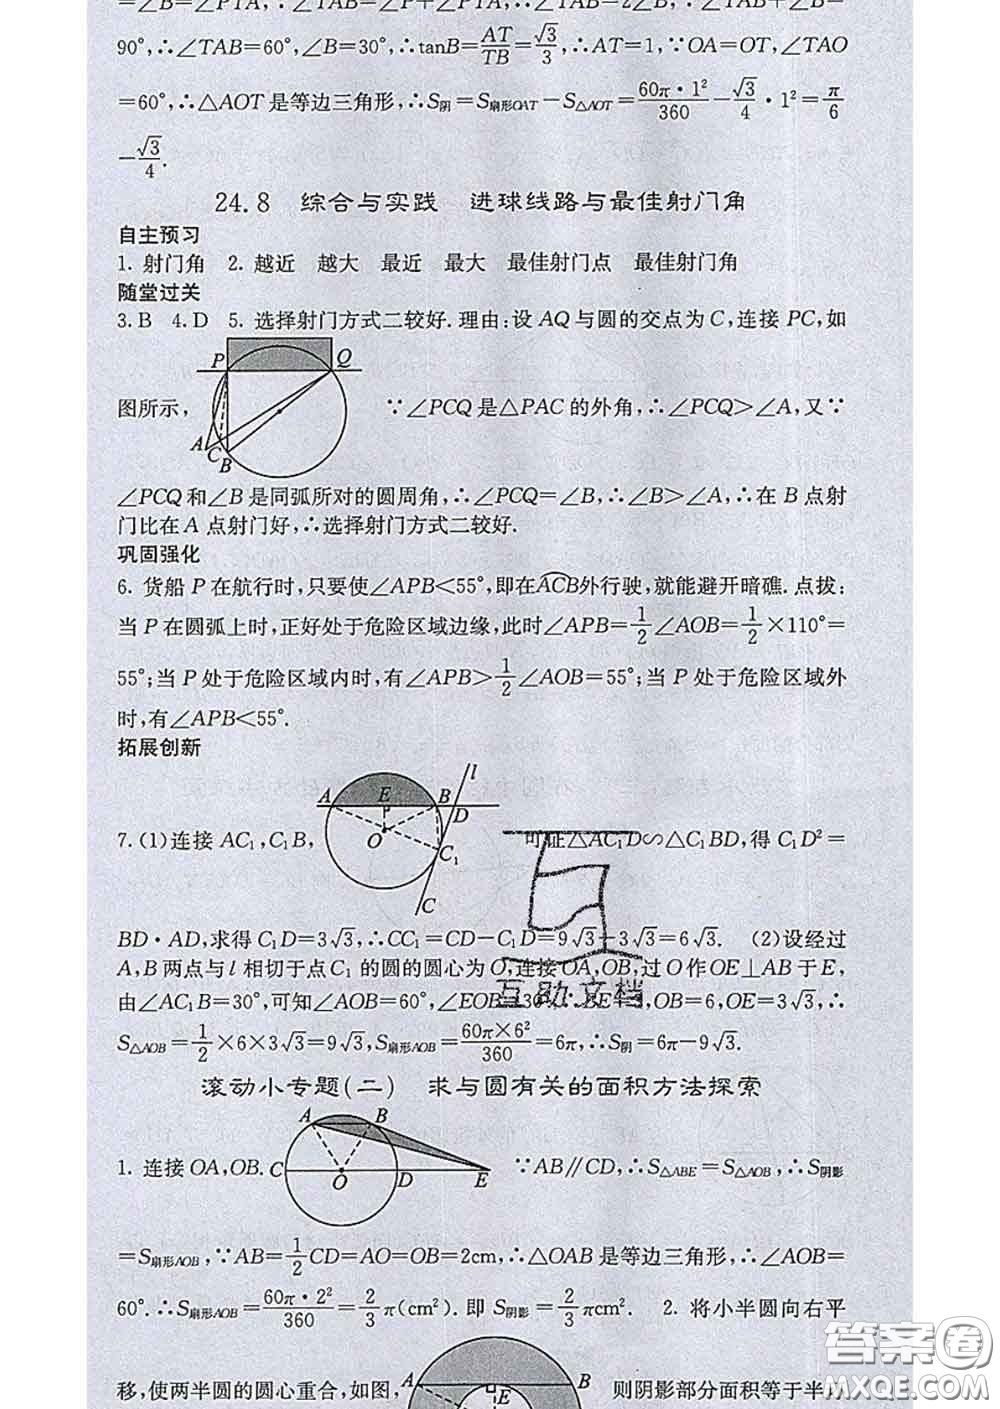 =∠B=∠PTA,∴∠TAB=∠P+∠PTA,∴∠TAB=2∠B,∵∠TAB+∠B=
90°,∴∠TAB=60°,∠B=30°,∴tanB=AT/TB=√3/3,∴AT=1,∵OA=OT,∠TAO
=60°,∴△AOT是等边三角形,∴S阴=S扇形OAT-S△AOT=60π·1²/360-√3/4·1²=π/6
-√3/4.
24.8 综合与实践 进球线路与最佳射门角
自主预习
1. 射门角 2. 越近 越大 最近 最大 最佳射门点 最佳射门角
随堂过关
3.B 4.D 5. 选择射门方式二较好.理由:设AQ与圆的交点为C,连接PC,如
P Q
图所示, ∵∠PCQ是△PAC的外角,∴∠PCQ>∠A,又∵
A C B
∠PCQ和∠B是同弧所对的圆周角,∴∠PCQ=∠B,∴∠B>∠A,∴在B点射
门比在A点射门好,∴选择射门方式二较好.
巩固强化
6. 货船P在航行时,只要使∠APB<55°,即在ACB外行驶,就能避开暗礁.点拨:
当P在圆弧上时,正好处于危险区域边缘,此时∠APB=1/2∠AOB=1/2×110°=
55°;当P处于危险区域内时,有∠APB>1/2∠AOB=55°;当P处于危险区域外
时,有∠APB<55°.
拓展创新
l
A E B D
7.(1)连接AC₁,C₁B, O C₁ 可证△AC₁D∽△C₁BD,得C₁D²=
C
BD·AD,求得C₁D=3√3,∴CC₁=CD-C₁D=9√3-3√3=6√3. (2)设经过
A,B两点与l相切于点C₁的圆的圆心为O,连接OA,OB,过O作OE⊥AB于E,
由∠AC₁B=30°,可知∠AOB=60°,∠EOB=30°,∴BE=3,OB=6,OE=3√3,∴
互助文档
S△AOB=1/2×6×3√3=9√3,S扇形AOB=60π×6²/360=6π,∴S阴=6π-9√3.
滚动小专题(二) 求与圆有关的面积方法探索
A B
1. 连接OA,OB. C O D E ∵AB∥CD,∴S△ABE=S△AOB,∴S阴影
=S扇形AOB,∵AB=1/2CD=AO=OB=2cm,∴△OAB是等边三角形,∴∠AOB=
60°.∴S扇形AOB=60π·2²/360=2/3π(cm²).即S阴影=2/3πcm². 2. 将小半圆向右平
移,使两半圆的圆心重合,如图, A E B 则阴影部分面积等于半
答案圈
MXQE.COM